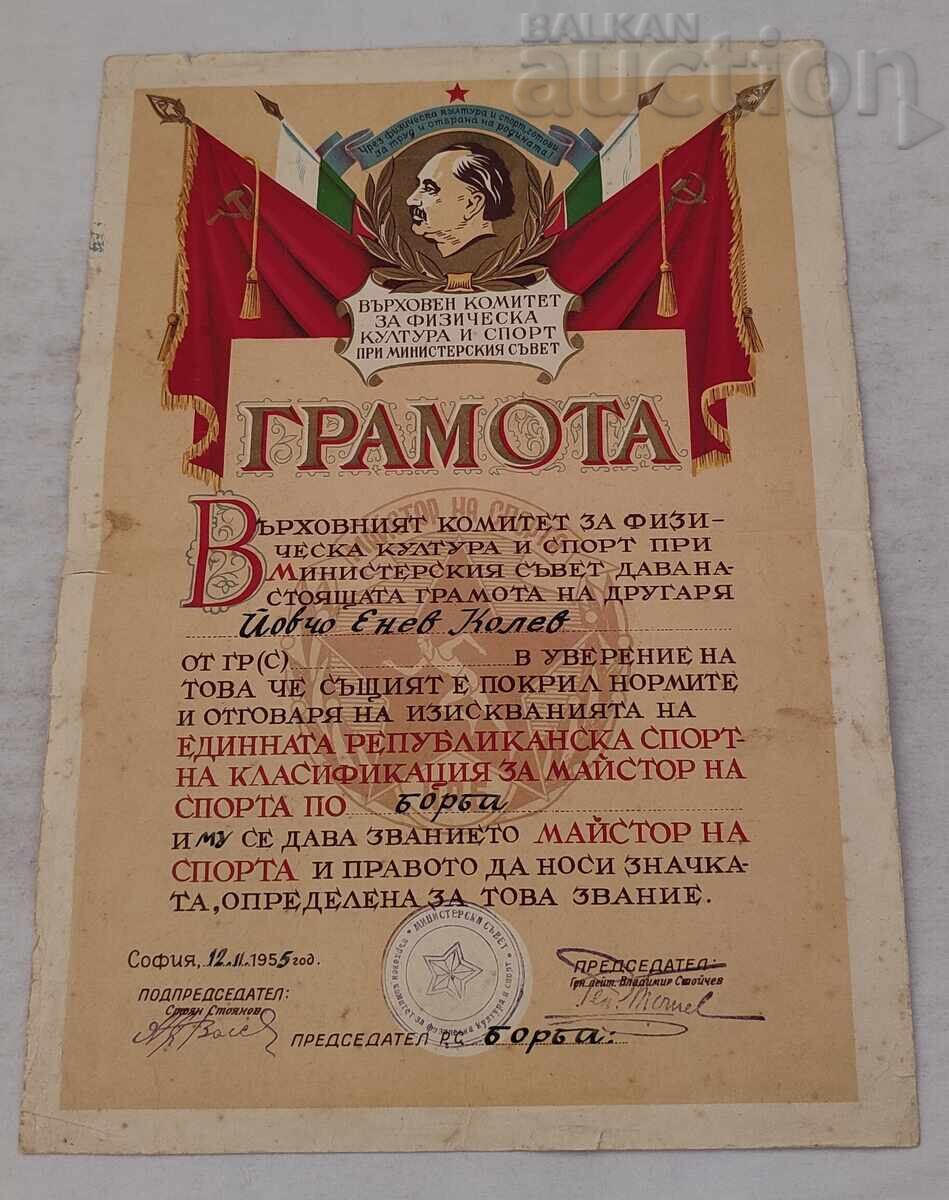 BALKAN
auction
Чрез физическа култура и спорт, готови
за труд и отбрана на родината!
ВЪРХОВЕН КОМИТЕТ
ЗА ФИЗИЧЕСКА
КУЛТУРА И СПОРТ
ПРИ МИНИСТЕРСКИЯ СЪВЕТ
ГРАМОТА
МАЙСТОР НА СПОРТА
ВЪРХОВНИЯТ КОМИТЕТ ЗА ФИЗИ-
ЧЕСКА КУЛТУРА И СПОРТ ПРИ
МИНИСТЕРСКИЯ СЪВЕТ ДАВА НА-
СТОЯЩАТА ГРАМОТА НА ДРУГАРЯ
Йовчо Енев Колев
ОТ ГР(С) В УВЕРЕНИЕ НА
ТОВА ЧЕ СЪЩИЯТ Е ПОКРИЛ НОРМИТЕ
И ОТГОВАРЯ НА ИЗИСКВАНИЯТА НА
ЕДИННАТА РЕПУБЛИКАНСКА СПОРТ-
НА КЛАСИФИКАЦИЯ ЗА МАЙСТОР НА
СПОРТА ПО борба
И му СЕ ДАВА ЗВАНИЕТО МАЙСТОР НА
СПОРТА И ПРАВОТО ДА НОСИ ЗНАЧКА-
ТА, ОПРЕДЕЛЕНА ЗА ТОВА ЗВАНИЕ.
МИНИСТЕРСКИ СЪВЕТ
Комитет за физическа култура и спорт
София, 12.II.1955 год.
ПРЕДСЕДАТЕЛ:
Ген. лейт. Владимир Стойчев
ПОДПРЕДСЕДАТЕЛ:
Стоян Стоянов
ПРЕДСЕДАТЕЛ РС борба: